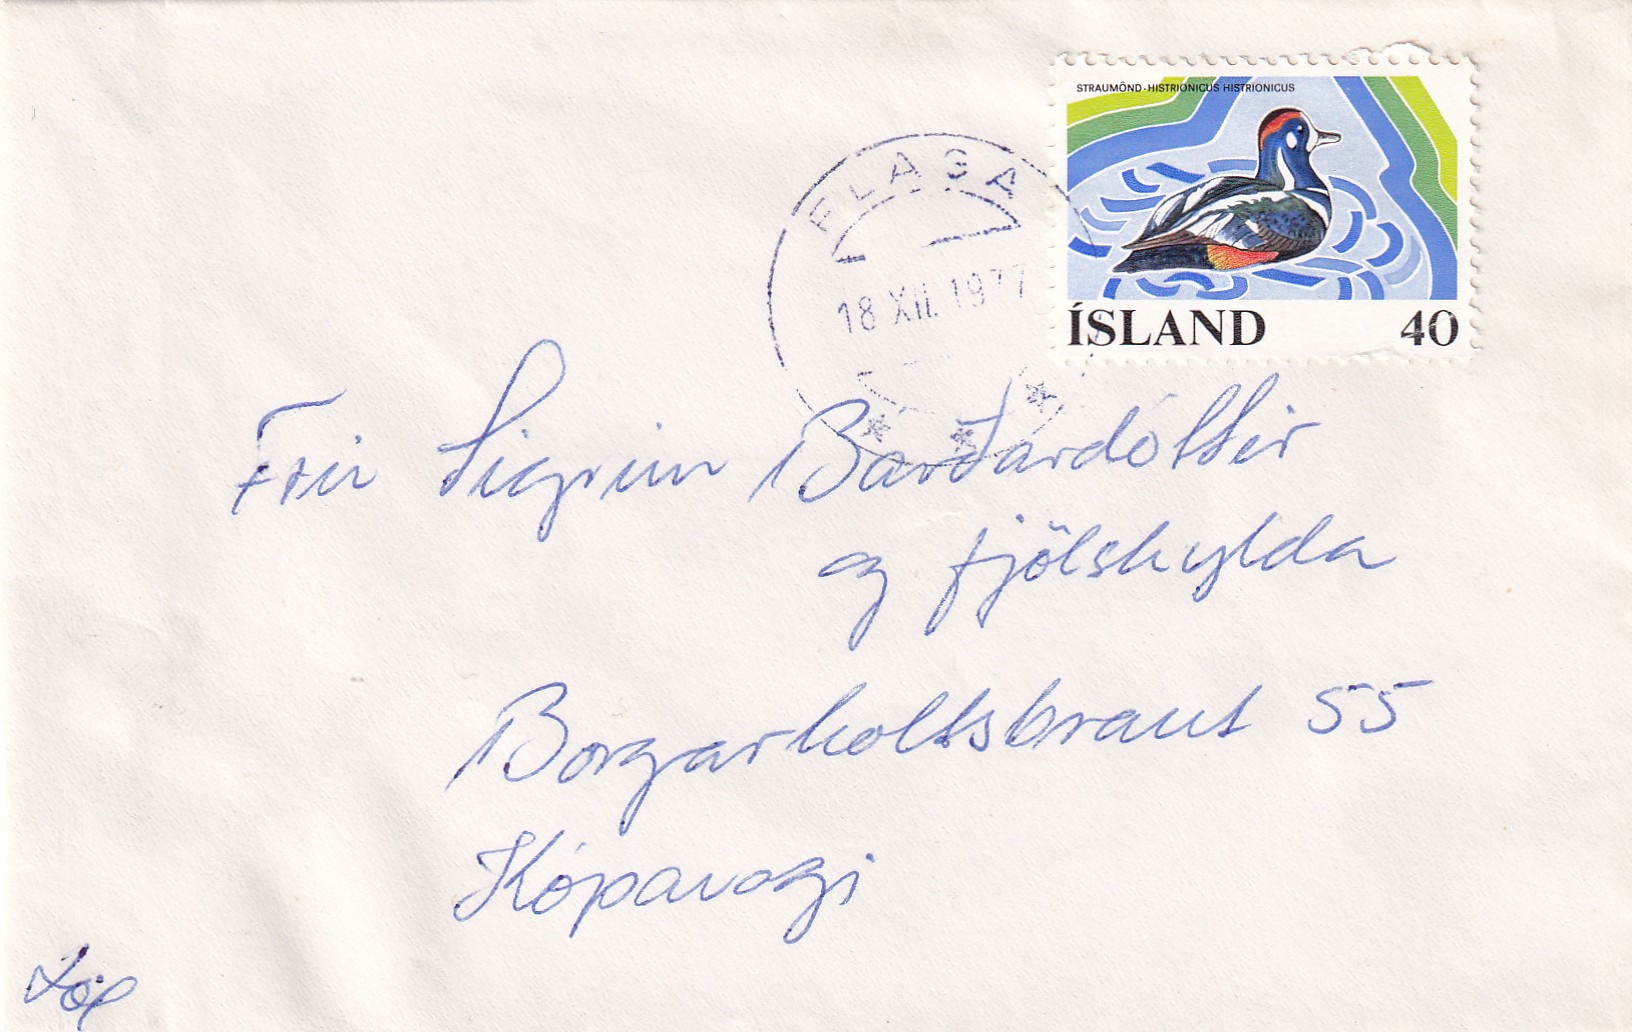 STRAUMÖND-HISTRIONICUS HISTRIONICUS
ÍSLAND 40
FLAGA
18 XII. 1977
Frú Sigrún Barðardóttir
og fjölskylda
Borgarholtsbraut 55
Kópavogi